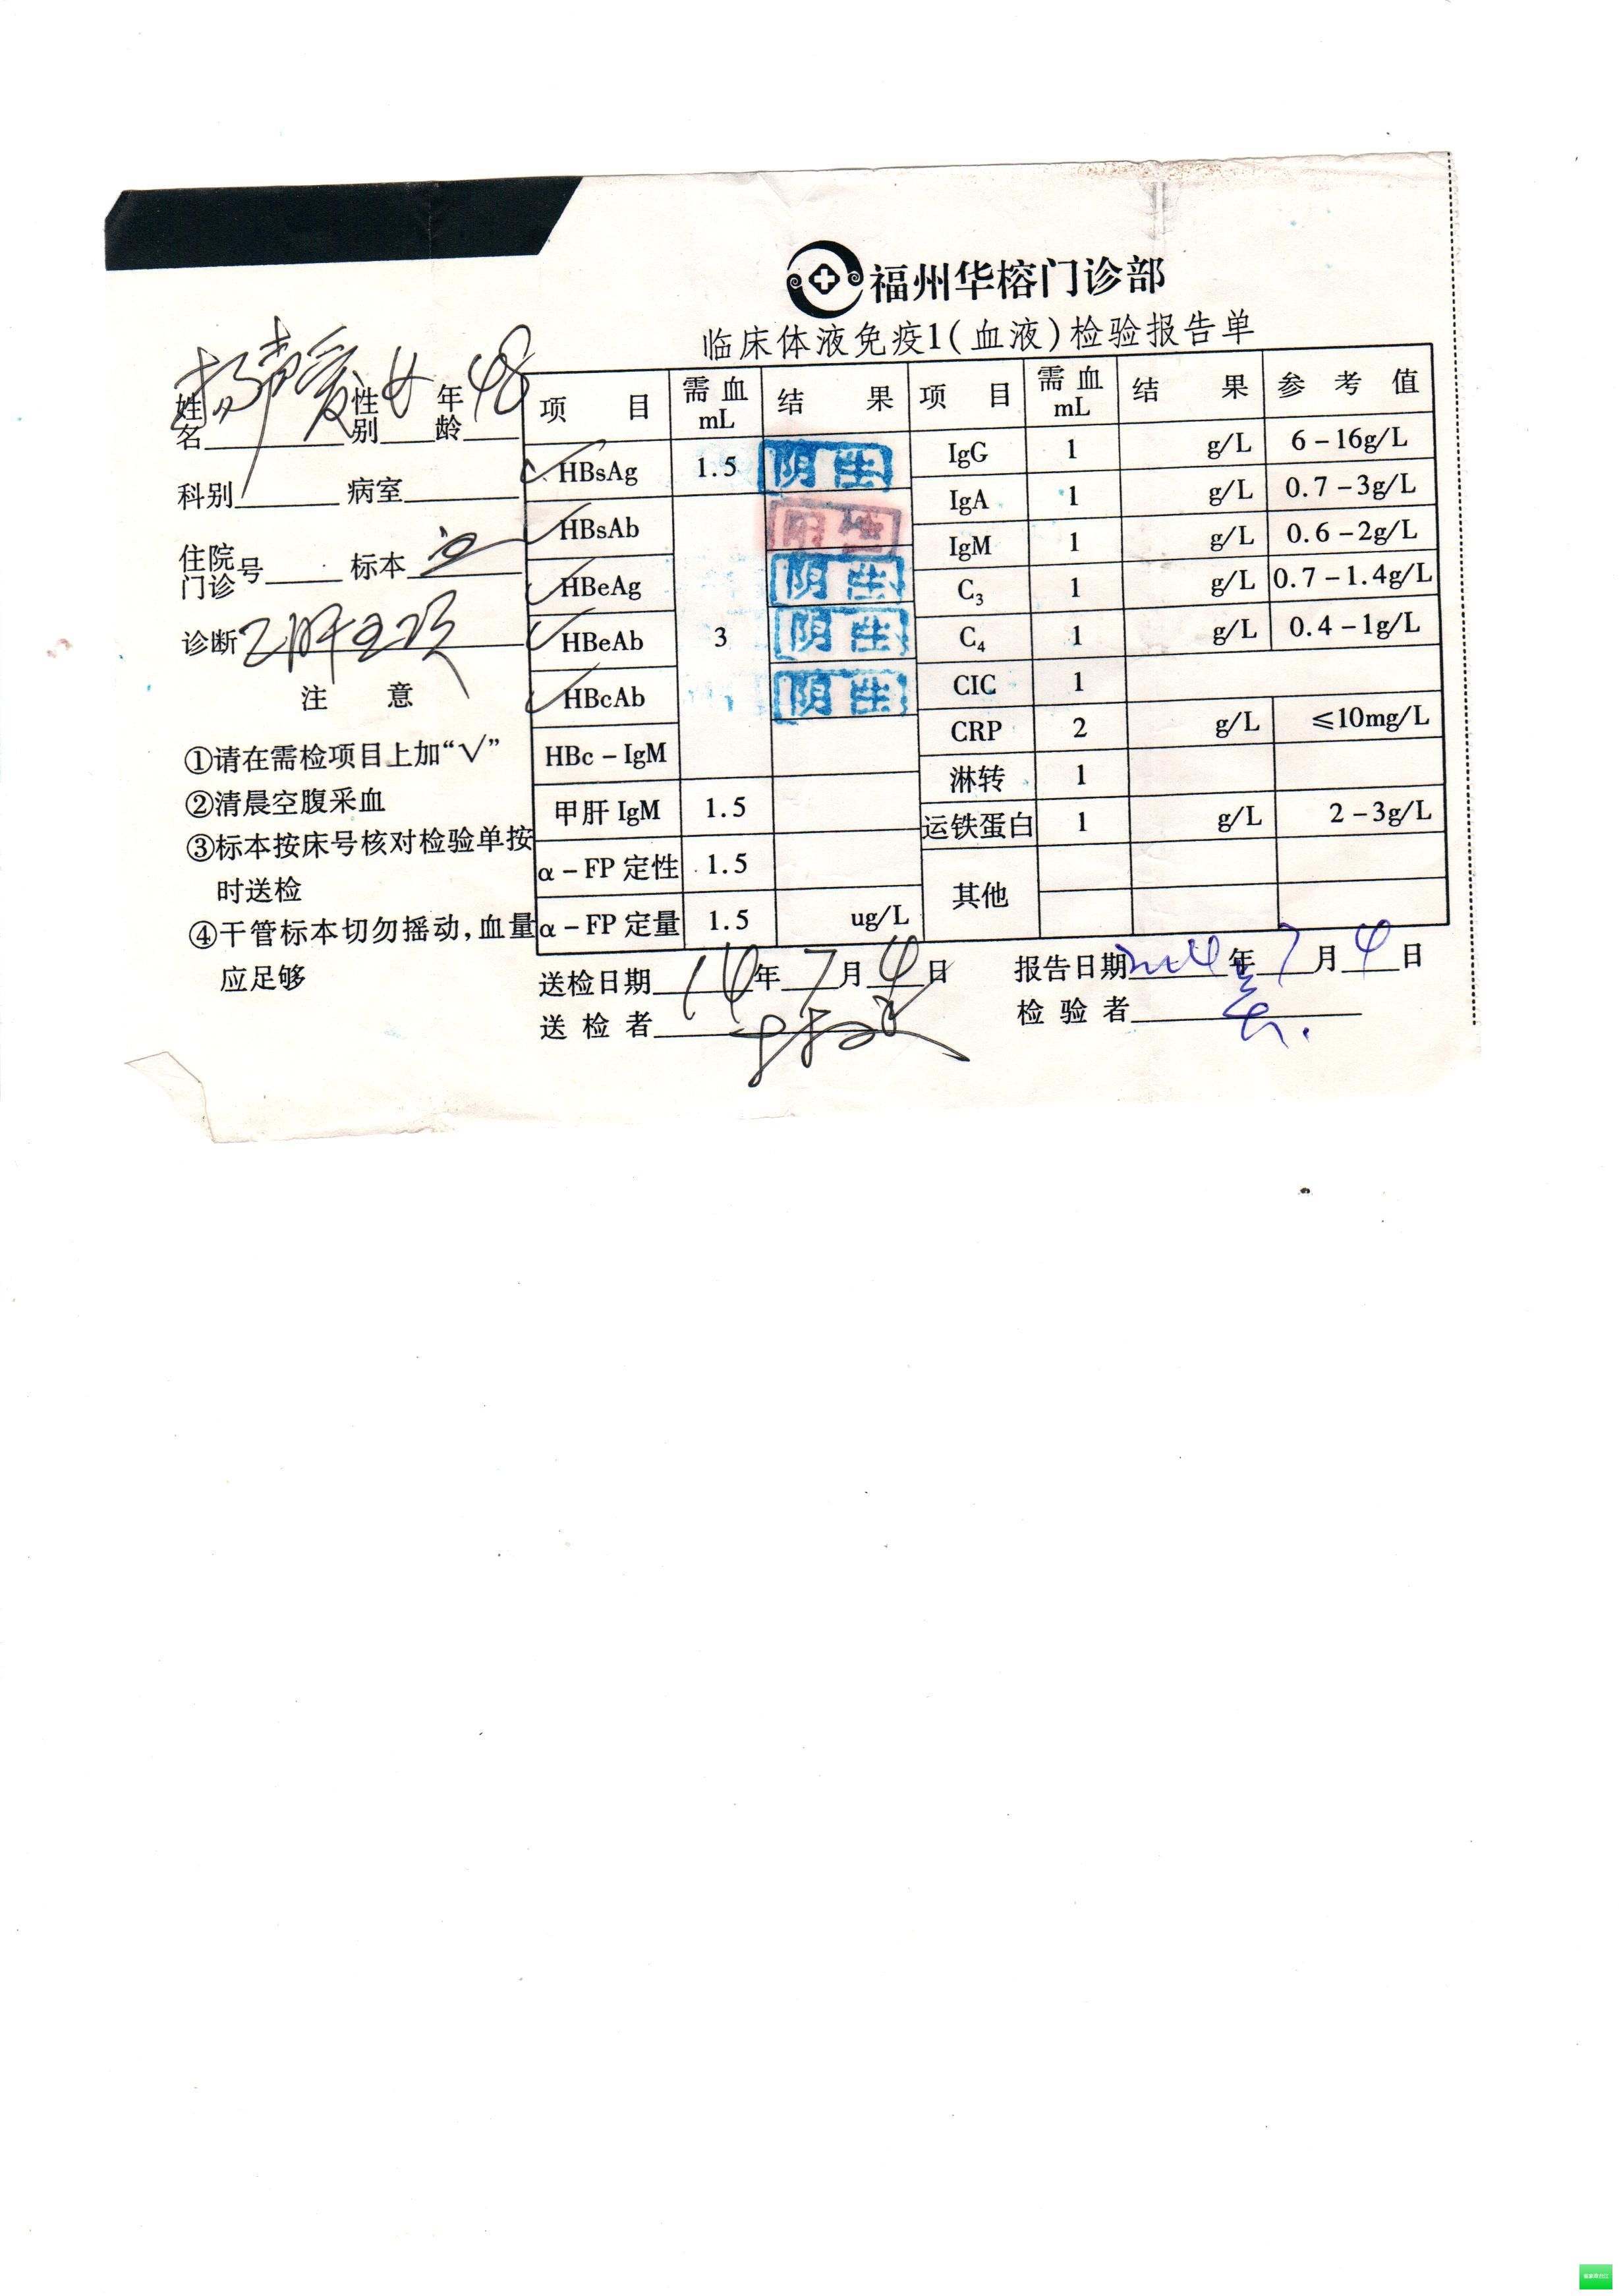 福州华榕门诊部
临床体液免疫1(血液)检验报告单
姓名 杨声爱 性别 女 年龄 48
科别 病室
住院门诊号 标本
诊断 乙肝五项
注 意
①请在需检项目上加“√”
②清晨空腹采血
③标本按床号核对检验单按
时送检
④干管标本切勿摇动,血量
应足够
项 目 需血mL 结 果 项 目 需血mL 结 果 参 考 值
√ HBsAg 1.5 阴性 IgG 1 g/L 6-16g/L
√ HBsAb IgA 1 g/L 0.7-3g/L
√ HBeAg 阴性 IgM 1 g/L 0.6-2g/L
√ HBeAb 3 阴性 C3 1 g/L 0.7-1.4g/L
√ HBcAb 阴性 C4 1 g/L 0.4-1g/L
HBc-IgM CIC 1
甲肝 IgM 1.5 CRP 2 g/L ≤10mg/L
α-FP 定性 1.5 淋转 1
α-FP 定量 1.5 ug/L 运铁蛋白 1 g/L 2-3g/L
其他
送检日期 14年7月4日 报告日期 2014年7月4日
送 检 者 检 验 者